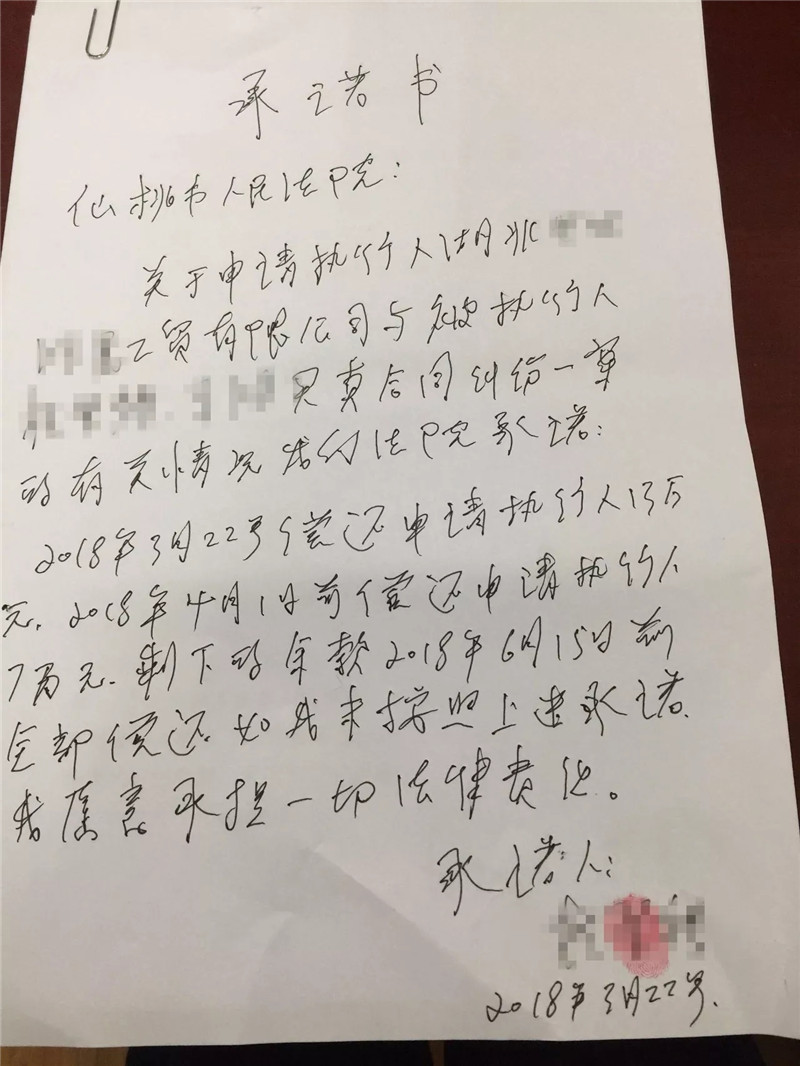 承诺书
仙桃市人民法院：
关于申请执行人湖北
工贸有限公司与被执行人
买卖合同纠纷一案
的有关情况我向法院承诺：
2018年3月22号偿还申请执行人13万
元、2018年4月1日前偿还申请执行人
7万元、剩下的余款2018年6月15日前
全部偿还、如我未按照上述承诺、
我愿意承担一切法律责任。
承诺人：
2018年3月22号、